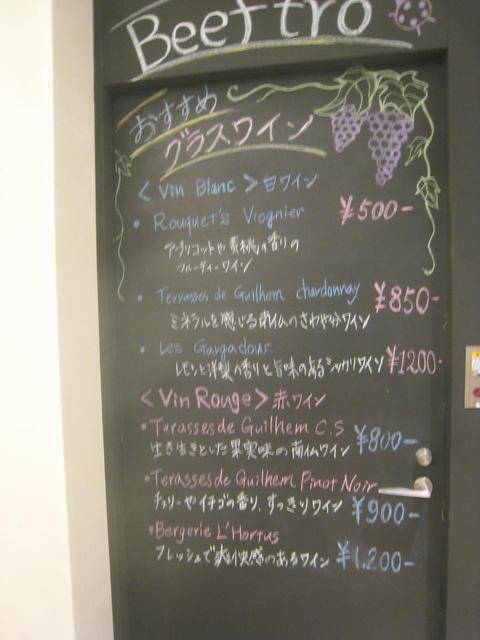 Beeftro
おすすめ
グラスワイン
<Vin Blanc> 白ワイン
• Rouquet's Viognier ¥500-
アプリコットや黄桃の香りの
フルーティーワイン
• Terrasses de Guilhem chardonnay ¥850-
ミネラルを感じる南仏のさわやかワイン
• Les Gargadous
レモンと洋梨の香りと旨味のあるシッカリワイン ¥1200-
<Vin Rouge> 赤ワイン
• Terasses de Guilhem C.S
生き生きとした果実味の南仏ワイン ¥800-
• Terasses de Guilhem Pinot Noir
チェリーやイチゴの香り、すっきりワイン ¥900-
• Bergerie L'Hortus
フレッシュで爽快感のあるワイン ¥1,200-